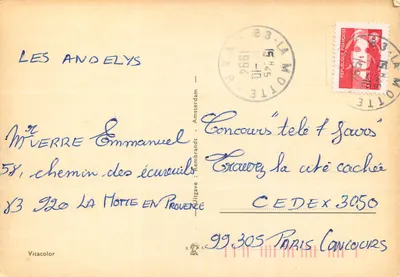 LES ANDELYS
83-LA MOTTE
15H45
-10
1994
Mr VERRE Emmanuel
58, chemin des écureuils
83 920 LA MOTTE EN PROVENCE
Vitacolor
Amsterdam
Concours "télé 7 jours"
Trouvez la cité cachée
CEDEX 3050
99.305 PARIS CONCOURS